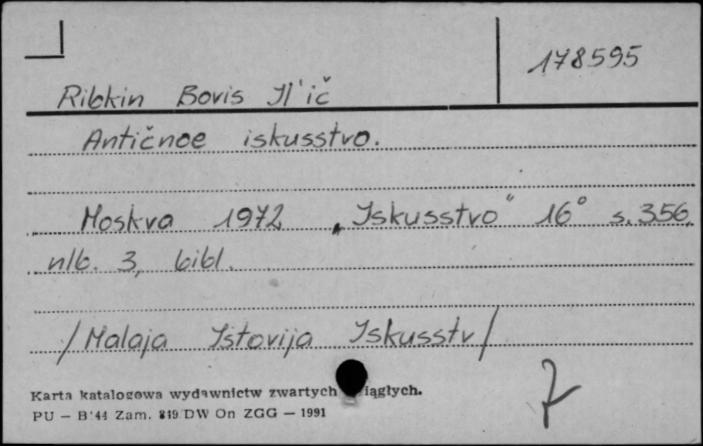 178595
Ribkin Boris Il'ič
Antičnoe iskusstvo.
Moskva 1972 „Iskusstvo" 16° s. 356,
nlb. 3, bibl.
/Malaja Istorija Iskusstv/
Karta katalogowa wydawnictw zwartych iągłych.
PU — B'44 Zam. 819 DW On ZGG — 1991